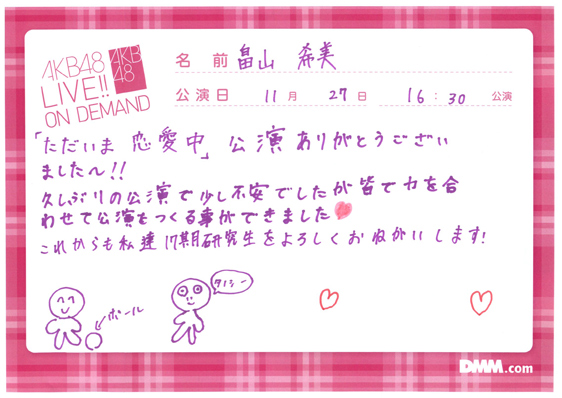 AKB48
LIVE!!
ON DEMAND
AKB
48
名前 畠山 希美
公演日 11月 27日 16:30 公演
「ただいま 恋愛中」公演ありがとうござい
ましたー!!
久しぶりの公演で少し不安でしたが皆で力を合
わせて公演をつくる事ができました
これからも私達17期研究生をよろしくおねがいします!
ボール
DMM.com